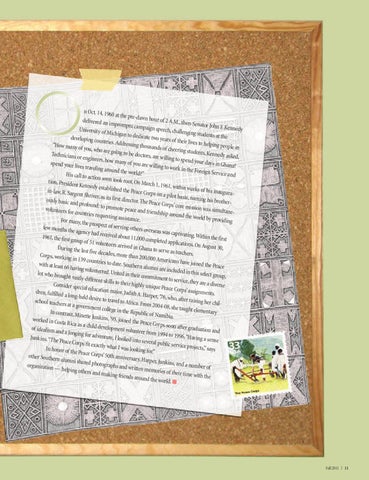 On Oct. 14, 1960 at the pre-dawn hour of 2 A.M., then-Senator John F. Kennedy
delivered an impromptu campaign speech, challenging students at the
University of Michigan to dedicate two years of their lives to helping people in
developing countries. Addressing thousands of cheering students, Kennedy asked,
"How many of you, who are going to be doctors, are willing to spend your days in Ghana?
Technicians or engineers, how many of you are willing to work in the Foreign Service and
spend your lives traveling around the world?"
His call to action soon took root. On March 1, 1961, within weeks of his inaugura-
tion, President Kennedy established the Peace Corps on a pilot basis, naming his brother-
in-law, R. Sargent Shriver, as its first director. The Peace Corps' core mission was simultane-
ously basic and profound: to promote peace and friendship around the world by providing
volunteers for countries requesting assistance.
For many, the prospect of serving others overseas was captivating. Within the first
few months the agency had received about 11,000 completed applications. On August 30,
1961, the first group of 51 volunteers arrived in Ghana to serve as teachers.
During the last five decades, more than 200,000 Americans have joined the Peace
Corps, working in 139 countries to date. Southern alumni are included in this select group,
with at least 64 having volunteered. United in their commitment to service, they are a diverse
lot who brought vastly different skills to their highly unique Peace Corps assignments.
Consider special education major, Judith A. Harper, '76, who, after raising her chil-
dren, fulfilled a long-held desire to travel to Africa. From 2004-08, she taught elementary
school teachers at a government college in the Republic of Namibia.
In contrast, Minette Junkins, '93, joined the Peace Corps soon after graduation and
worked in Costa Rica as a child development volunteer from 1994 to 1996. "Having a sense
of idealism and a longing for adventure, I looked into several public service projects," says
Junkins. "The Peace Corps fit exactly what I was looking for."
In honor of the Peace Corps' 50th anniversary, Harper, Junkins, and a number of
other Southern alumni shared photographs and written memories of their time with the
organization — helping others and making friends around the world.
The Peace Corps
Fall 2011 | 11